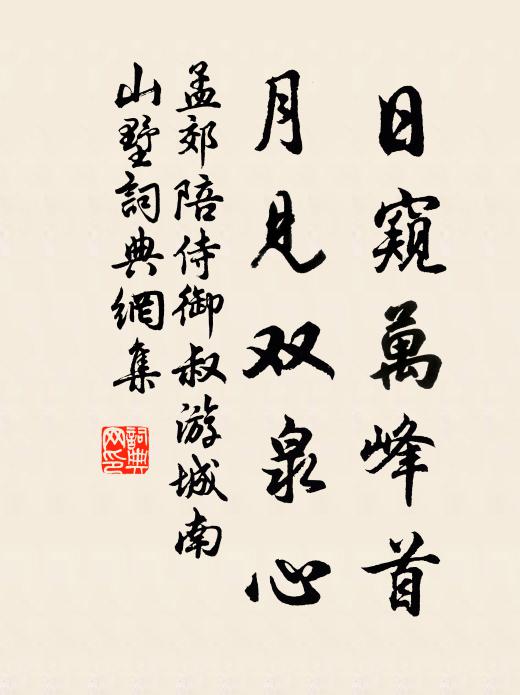 日窺萬峰首
月見双泉心
孟郊陪侍御叔游城南
山墅詞典網集
詞典
网印